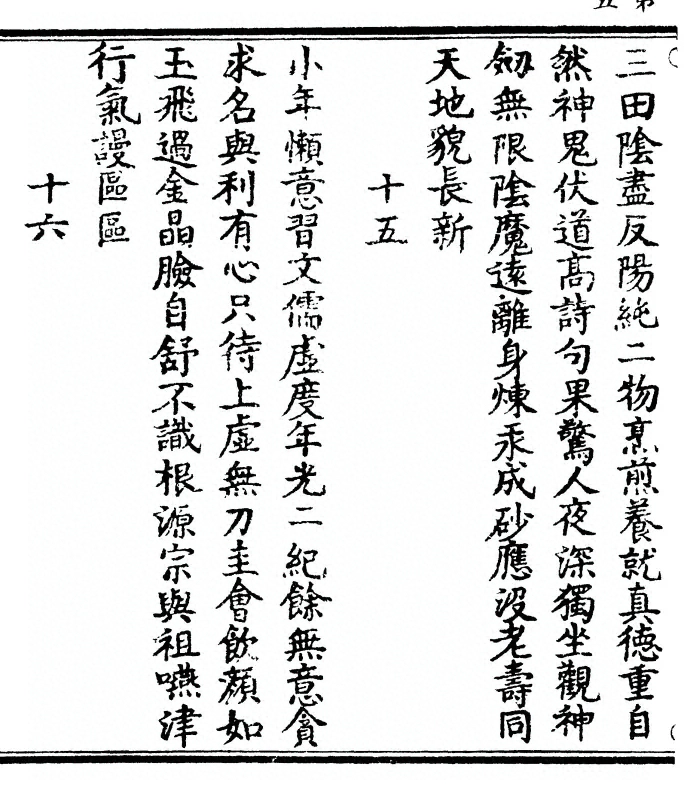 第五
三田陰盡反陽純二物烹煎養就真德重自
然神鬼伏道高詩句果驚人夜深獨坐觀神
劒無限陰魔遠離身煉汞成砂應沒老壽同
天地貌長新
十五
小年懶意習文儒虛度年光二紀餘無意貪
求名與利有心只待上虛無刀圭會飲顏如
玉飛過金晶臉自舒不識根源宗與祖嚥津
行氣謾區區
十六